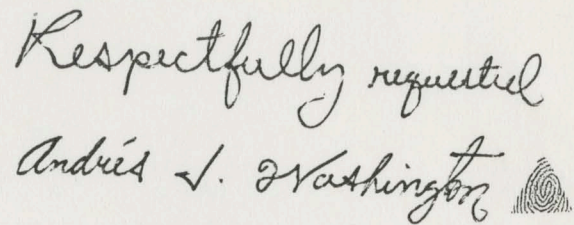 Respectfully requested
Andrés J. Washington